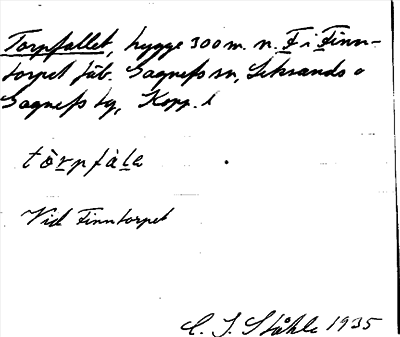 Torpfallet, bygge 300 m. n. F i Finn-
torpet fäb. Gagnefs sn, Leksands o
Gagnefs tg, Kopp. l
tò̱rpfàḻe
Vid Finntorpet
C. I. Ståhle 1935